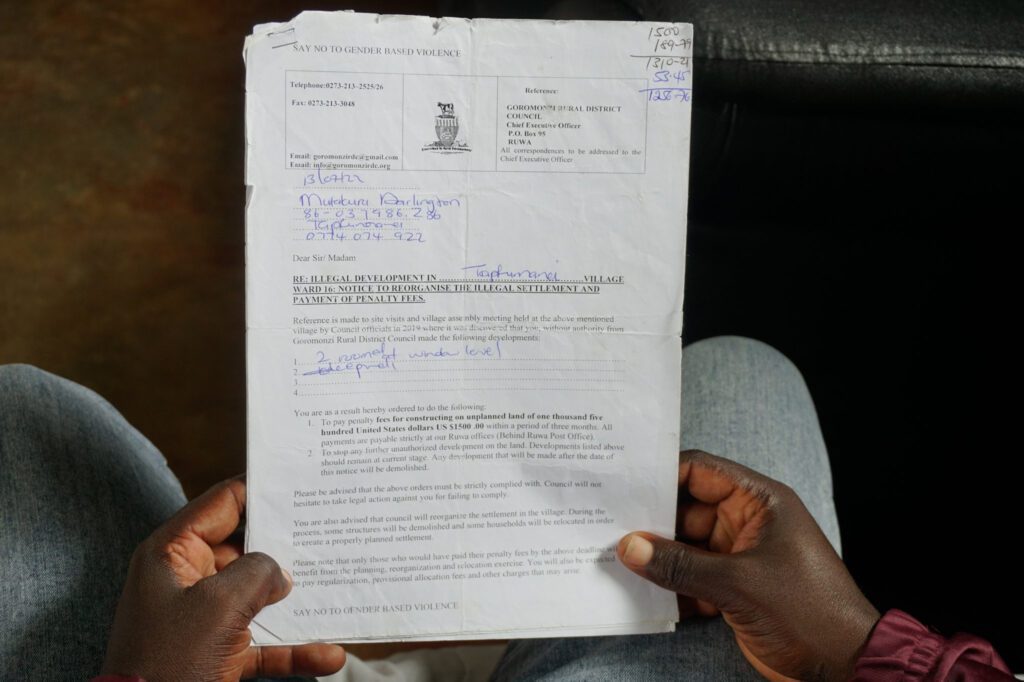 SAY NO TO GENDER BASED VIOLENCE
1500
189-79
1310-21
53.45
1256-76
Telephone:0273-213-2525/26
Fax: 0273-213-3048
Email: goromonzirdc@gmail.com
Email: info@goromonzirdc.org
Reference:
GOROMONZI RURAL DISTRICT
COUNCIL
Chief Executive Officer
P.O. Box 95
RUWA
All correspondences to be addressed to the
Chief Executive Officer
13/07/22
Mutakura Darlington
86-037986 Z 86
0774 074 922
Dear Sir/ Madam
RE: ILLEGAL DEVELOPMENT IN Taphumanei VILLAGE
WARD 16: NOTICE TO REORGANISE THE ILLEGAL SETTLEMENT AND
PAYMENT OF PENALTY FEES.
Reference is made to site visits and village assembly meeting held at the above mentioned
village by Council officials in 2019 where it was discovered that you, without authority from
Goromonzi Rural District Council made the following developments:
1. 2 roomed window level
2. deepwell
3.
4.
You are as a result hereby ordered to do the following:
1. To pay penalty fees for constructing on unplanned land of one thousand five
hundred United States dollars US $1500 .00 within a period of three months. All
payments are payable strictly at our Ruwa offices (Behind Ruwa Post Office).
2. To stop any further unauthorized development on the land. Developments listed above
should remain at current stage. Any development that will be made after the date of
this notice will be demolished.
Please be advised that the above orders must be strictly complied with. Council will not
hesitate to take legal action against you for failing to comply.
You are also advised that council will reorganize the settlement in the village. During the
process, some structures will be demolished and some households will be relocated in order
to create a properly planned settlement.
Please note that only those who would have paid their penalty fees by the above deadline will
benefit from the planning, reorganization and relocation exercise. You will also be expected
to pay regularization, provisional allocation fees and other charges that may arise.
SAY NO TO GENDER BASED VIOLENCE